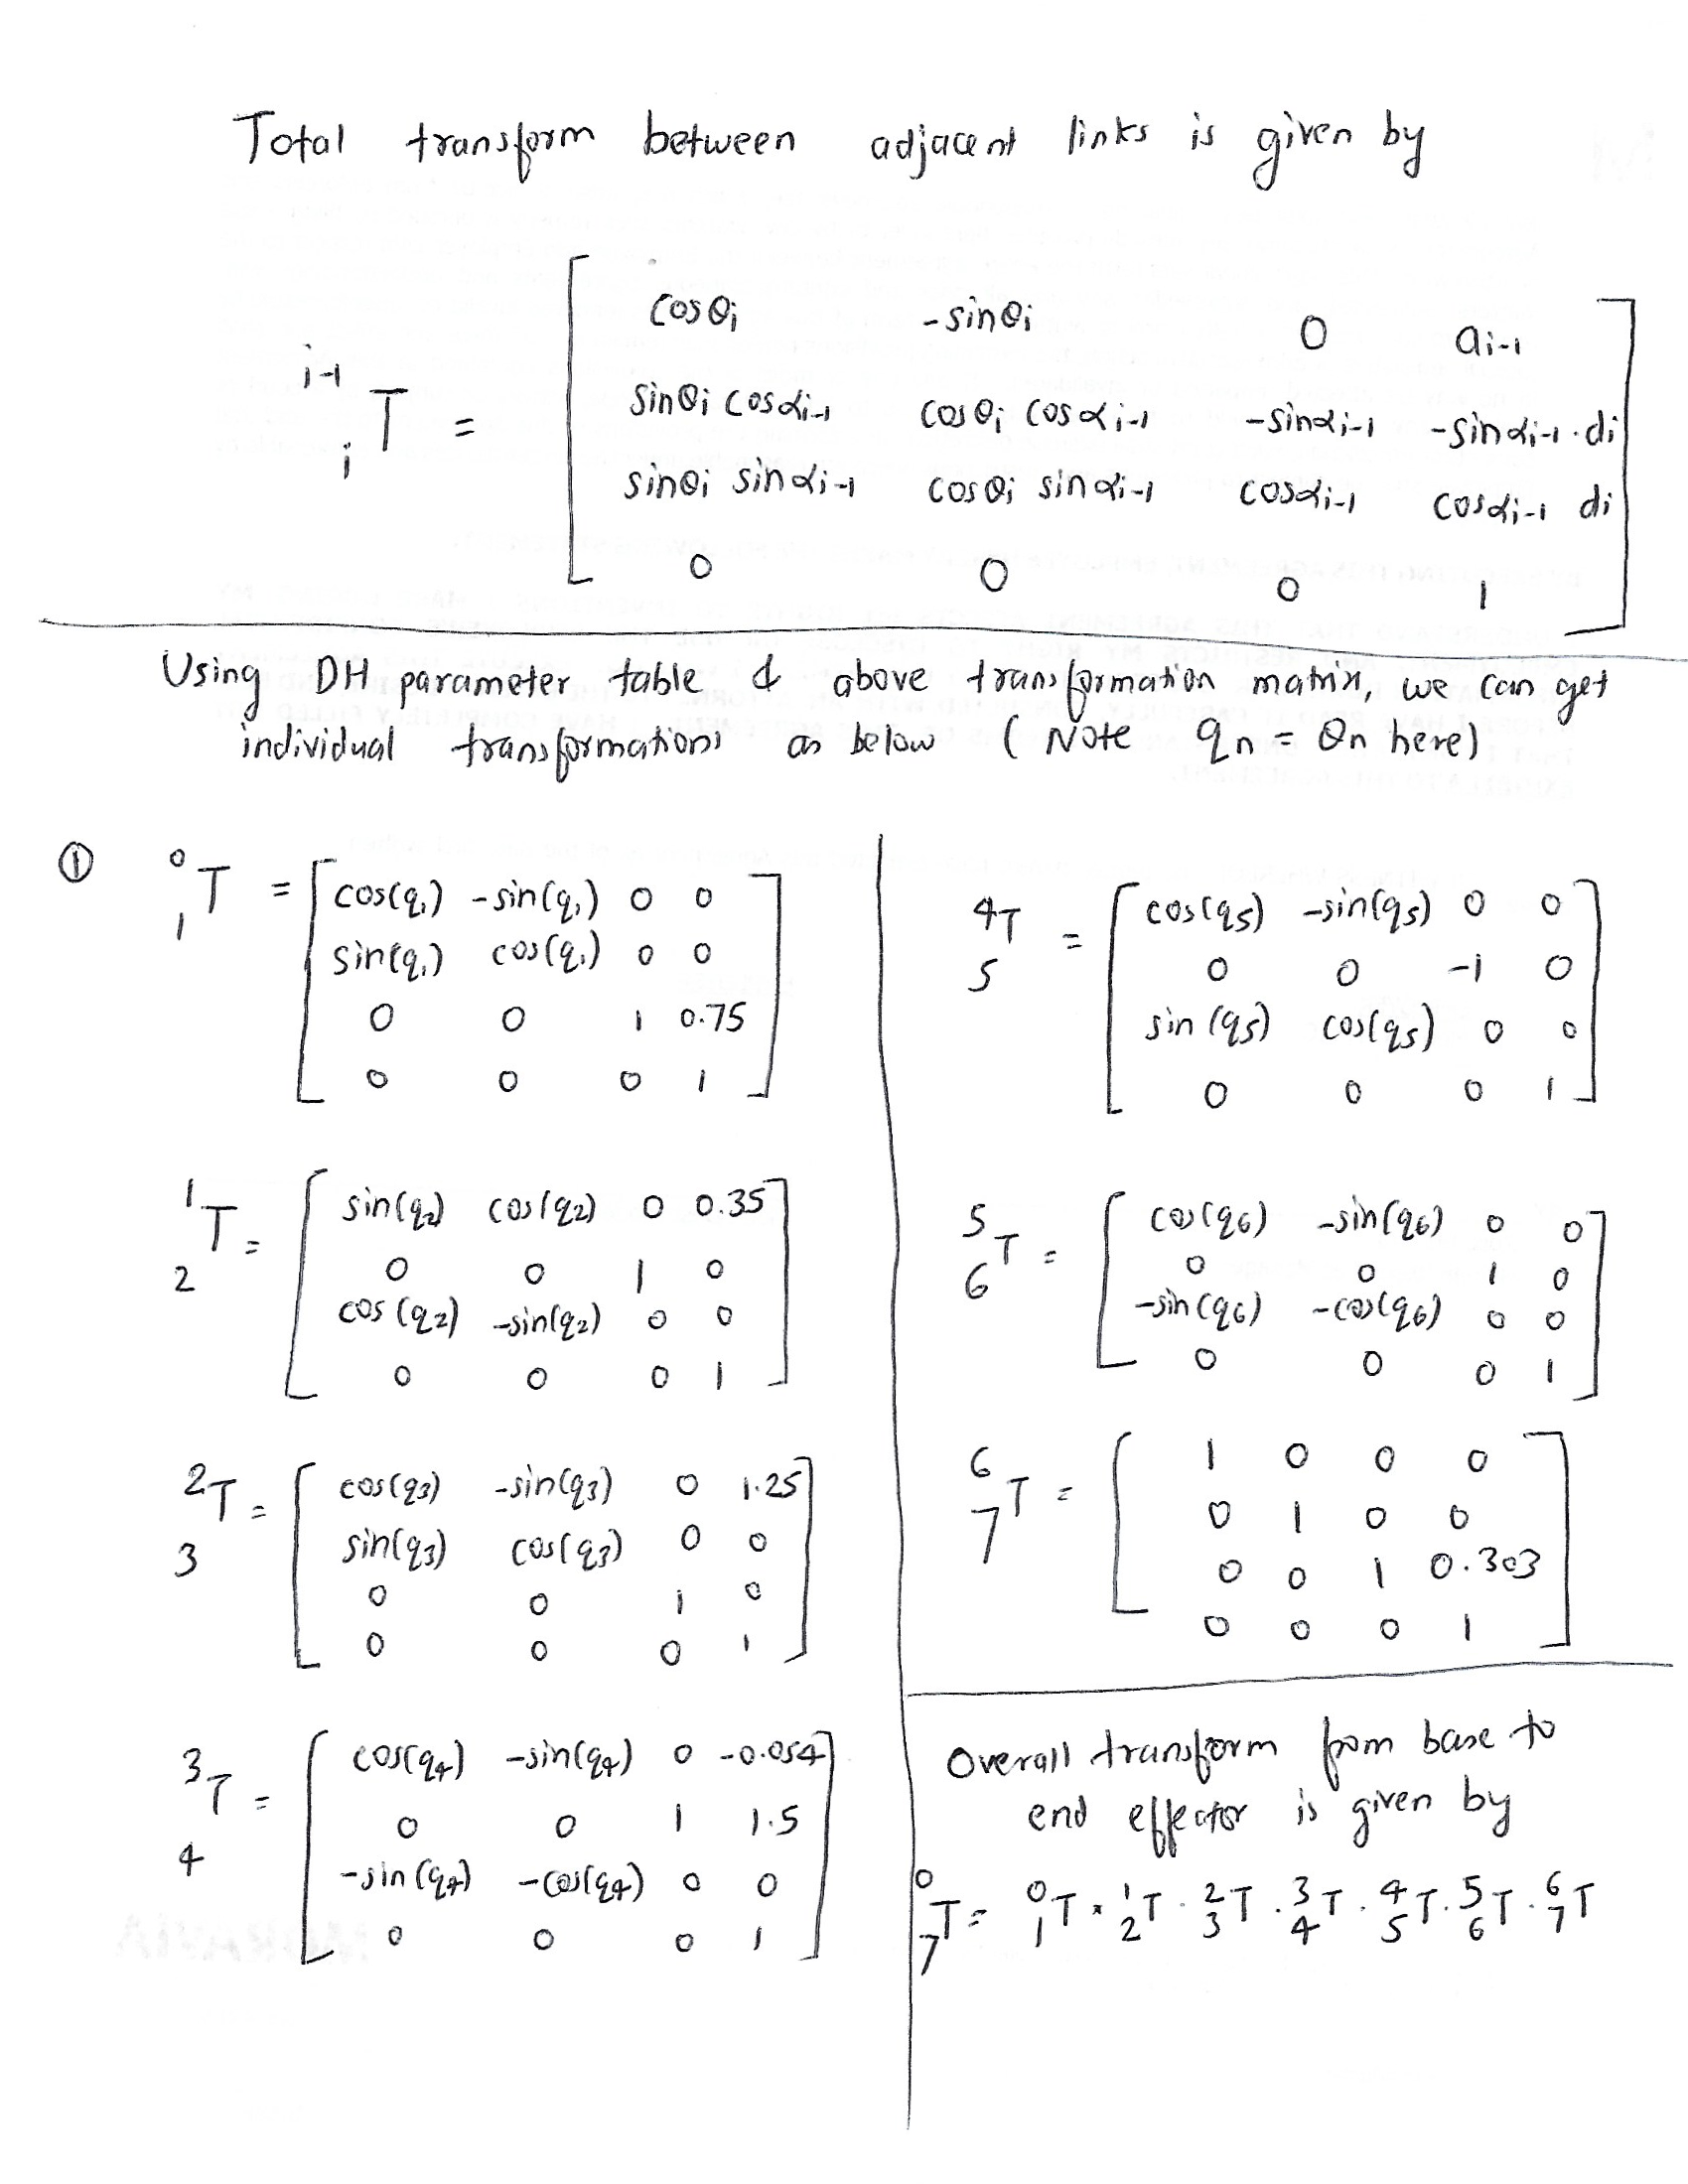 Total transform between adjacent links is given by
i-1 cosθi -sinθi 0 ai-1
T = sinθi cosαi-1 cosθi cosαi-1 -sinαi-1 -sinαi-1 . di
i sinθi sinαi-1 cosθi sinαi-1 cosαi-1 cosαi-1 di
0 0 0 1
Using DH parameter table & above transformation matrix, we can get
individual transformations as below (Note qn = θn here)
① 0 1 T = cos(q1) -sin(q1) 0 0
sin(q1) cos(q1) 0 0
0 0 1 0.75
0 0 0 1
1 2 T = sin(q2) cos(q2) 0 0.35
0 0 1 0
cos(q2) -sin(q2) 0 0
0 0 0 1
2 3 T = cos(q3) -sin(q3) 0 1.25
sin(q3) cos(q3) 0 0
0 0 1 0
0 0 0 1
3 4 T = cos(q4) -sin(q4) 0 -0.054
0 0 1 1.5
-sin(q4) -cos(q4) 0 0
0 0 0 1
4 5 T = cos(q5) -sin(q5) 0 0
0 0 -1 0
sin(q5) cos(q5) 0 0
0 0 0 1
5 6 T = cos(q6) -sin(q6) 0 0
0 0 1 0
-sin(q6) -cos(q6) 0 0
0 0 0 1
6 7 T = 1 0 0 0
0 1 0 0
0 0 1 0.303
0 0 0 1
Overall transform from base to
end effector is given by
0 7 T = 0 1 T . 1 2 T . 2 3 T . 3 4 T . 4 5 T . 5 6 T . 6 7 T